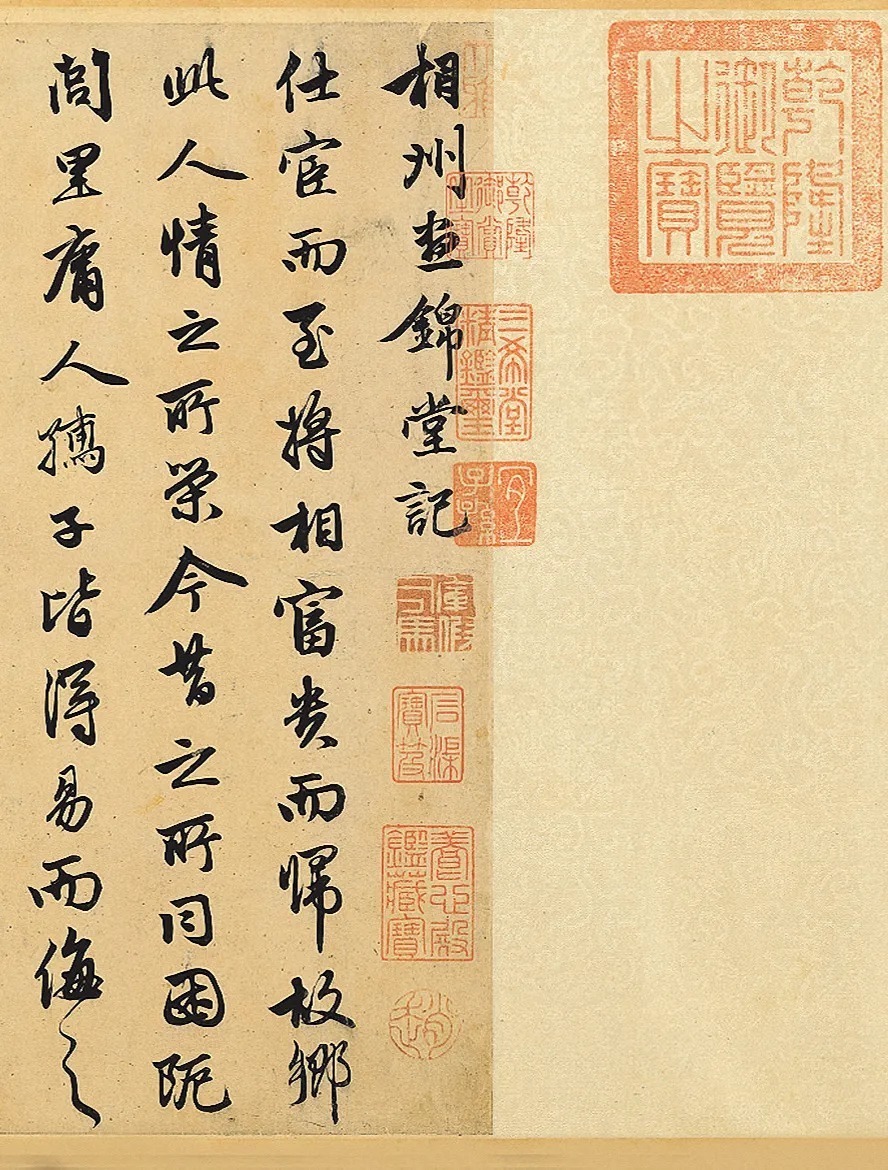 乾隆御覽之寶
三希堂精鑑璽
宜子孫
相州晝錦堂記
石渠寶笈
養心殿鑑藏寶
趙
仕宦而至將相富貴而歸故鄉
此人情之所榮今昔之所同困阨
閭里庸人孺子皆得易而侮之